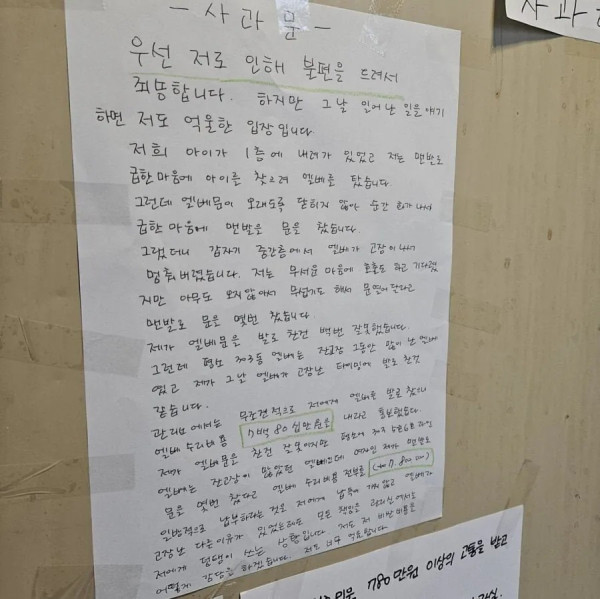 - 사 과 문 -
우선 저로 인해 불편을 드려서
죄송합니다. 하지만 그날 일어난 일을 얘기
하면 저도 억울한 입장 입니다
저희 아이가 1층에 내려가 있었고 저는 맨발로
급한 마음에 아이를 찾으려 엘베를 탔습니다
그런데 엘베문이 오래도록 닫히지 않아 순간 화가 나서
급한 마음에 맨발로 문을 찼습니다.
그랬더니 갑자기 중간층에서 엘베가 고장이 나서
멈춰버렸습니다. 저는 무서운 마음에 호출도 하고 기다렸
지만 아무도 오지 않아서 무섭기도 해서 문열어달라고
맨발로 문을 몇번 찼습니다.
제가 엘베문을 발로 찬건 백번 잘못했습니다.
그런데 평소 303동 엘베는 잔고장 그동안 많이 난 엘베
였고 제가 그날 엘베가 고장난 타이밍에 발로 찬것
같습니다.
관리소에서는 무조건적으로 저에게 엘베를 발로 찼으니
엘베 수리비용 7백 80 십만원을 내라고 통보했습니다
제가 엘베문을 찬건 잘못이지만 평소에 303 동
엘베는 잔고장이 많았던 엘베인데 여자인 제가 맨발로
문을 몇번 찼다고 엘베 수리비용 전부를
일방적으로 납부하라는 것은 저에게 납득이 가지 않고 엘베가
고장난 다른이유가 있었을텐데 모든 책임을 관리실에서
저에게 덤탱이 쓰는 상황입니다. 저도 저 비싼비용을
어떻게 감당을 하겠습니까. 저도 너무 억울합니다.
사과
780만원 이상의 고통을 받고